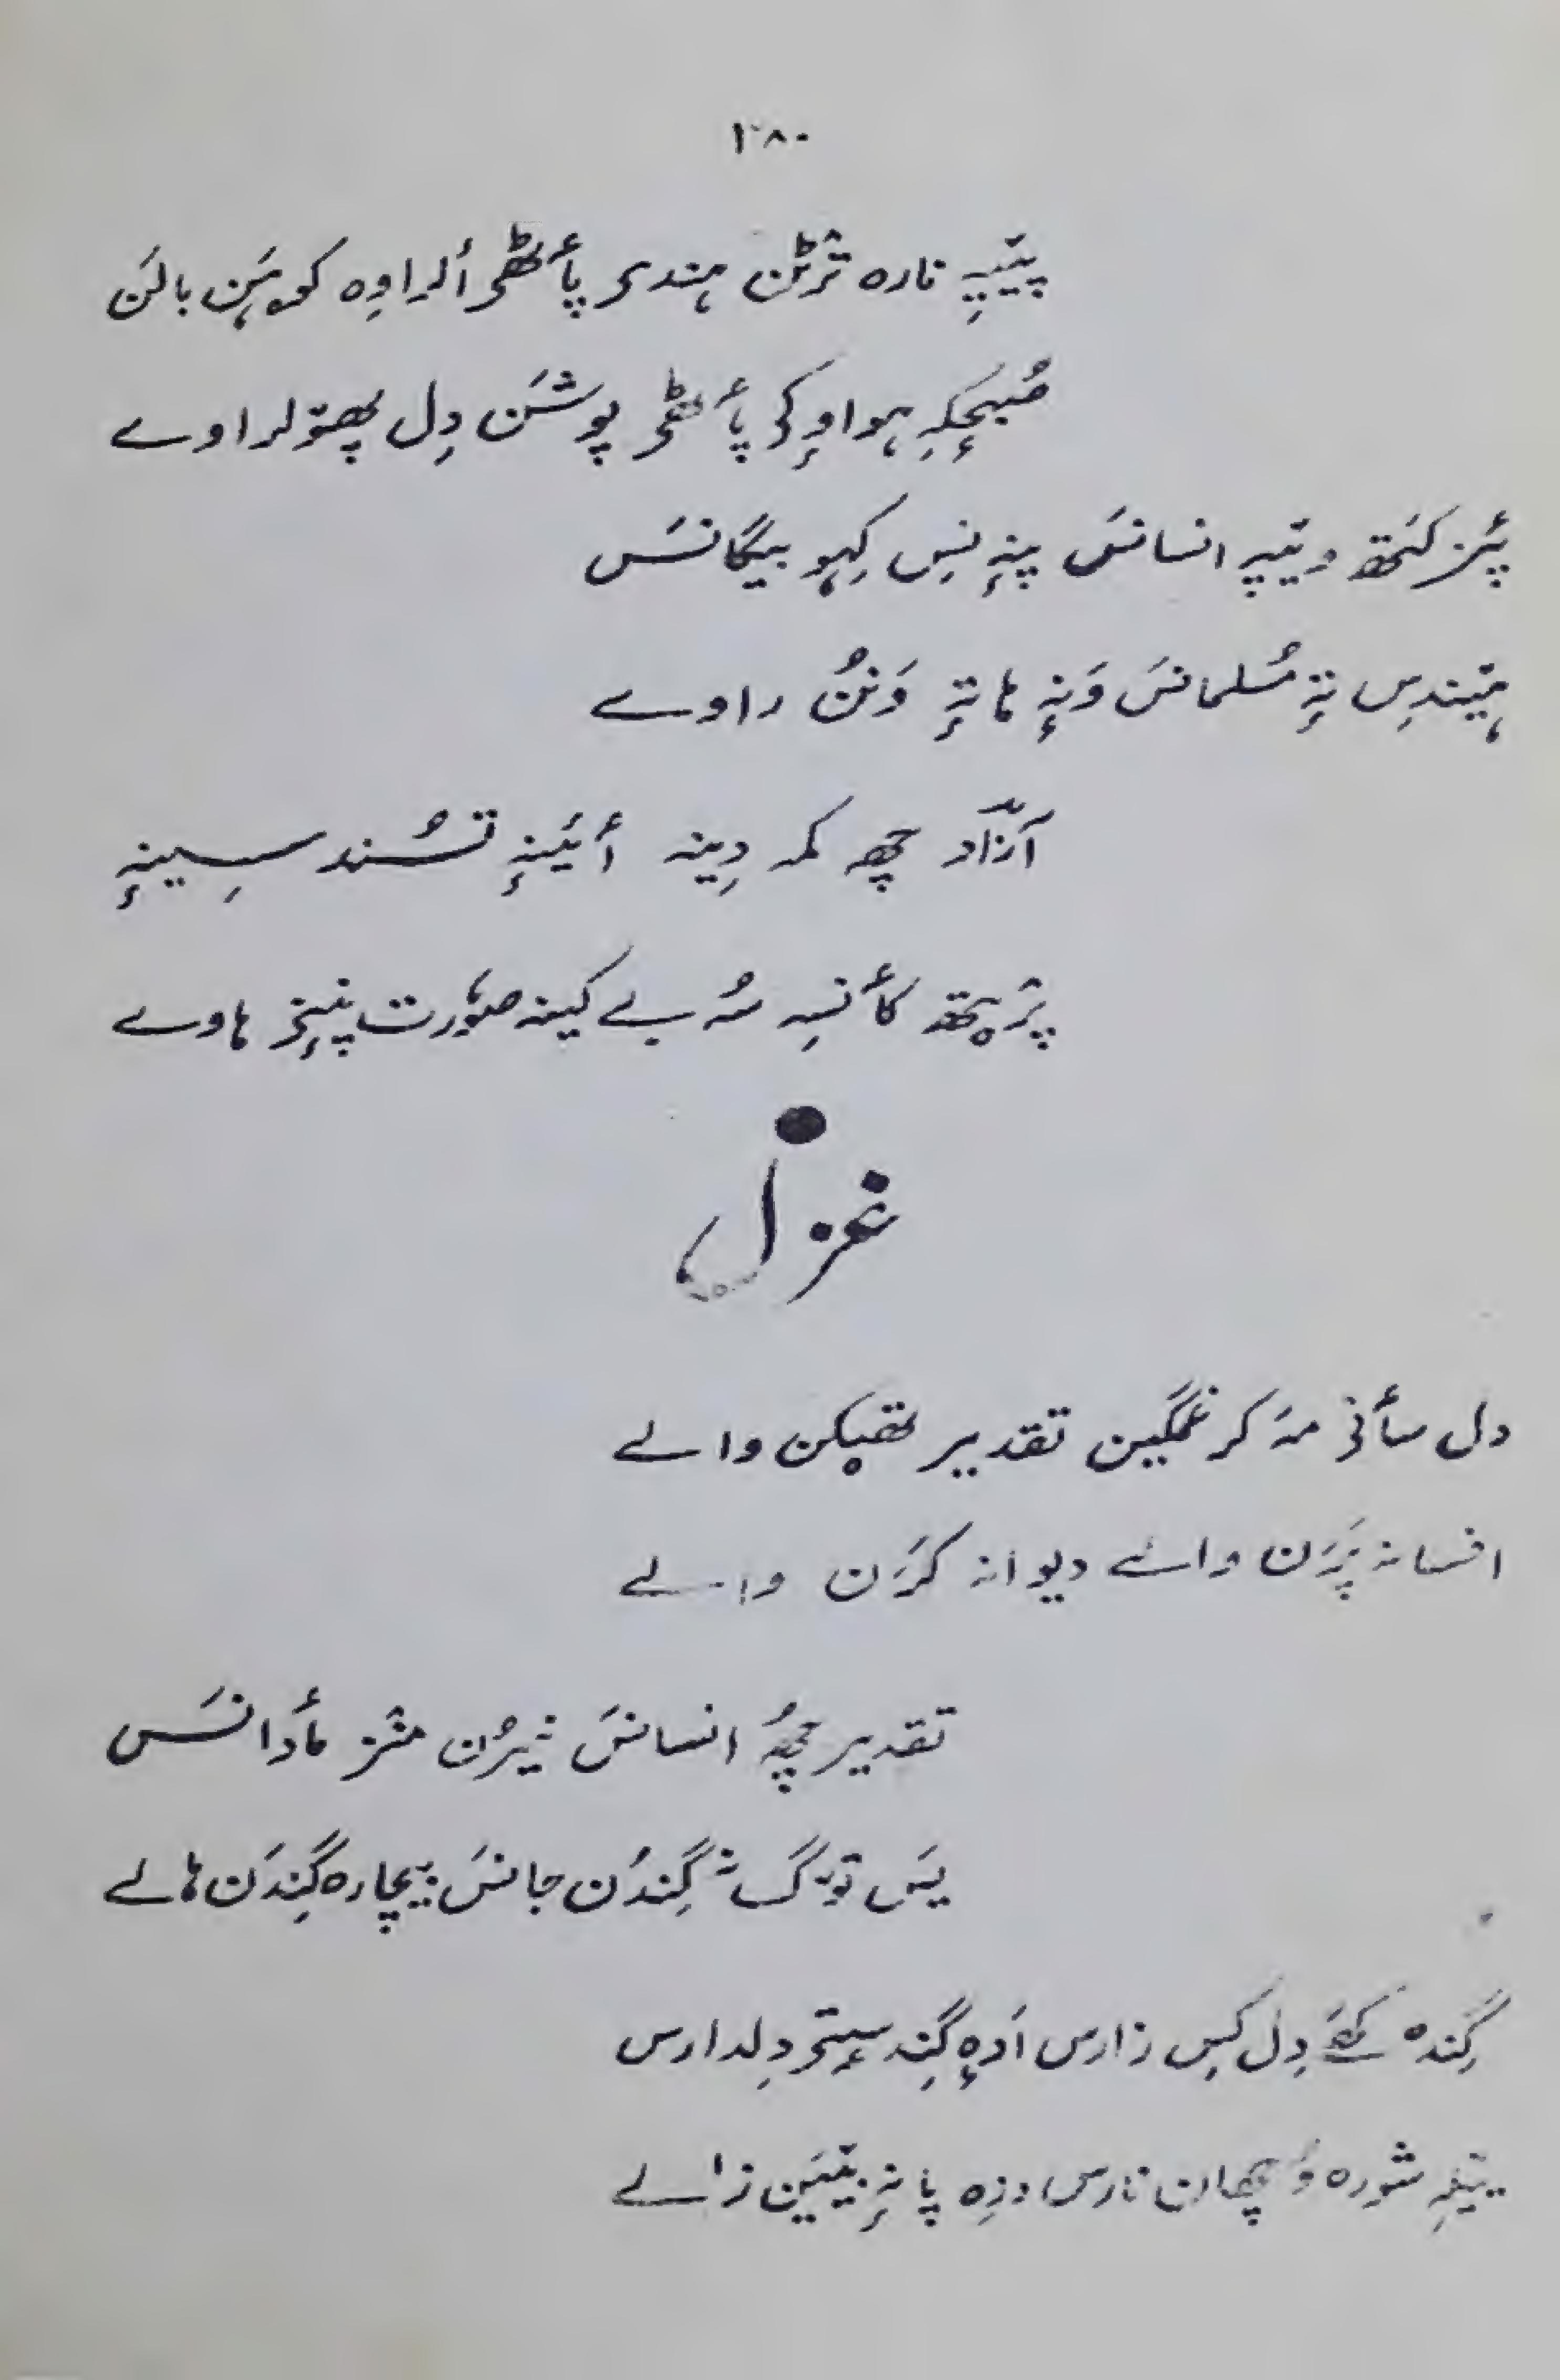 ۱۸۰
پیٚیہِ نارہ ترٛٹن ہندۍ پأٹھۍ اَلراوِہ کوہَن بالَن
صُبحٕکہِ ہواوٕکۍ پأٹھۍ پوشَن دِل پھۄلراوے
پَزٕ کَتھ ویٚپہِ انسانَس پنہٕ نِس کِہو بیگانَس
ہیٚندِس تہٕ مُسلمانَس وَنہٕ ہا تہٕ وَنُن راوے
آزاد چھہ کمہ دِینہ أئینہٕ تسُند سِینہٕ
پرٛتھ کأنسہِ سُہ بے کینہ صوٗرت پنٕنۍ ہاوے
غزل
دل سأنۍ مہ کر غمگین تقدیر لیٚکن والے
افسانہ پَرَن والے دیوانہ کَرَن والے
تقدیر چھُہ انسانَس ژیرُن منٛز مأدانَس
یَس گِندُن جانَس بیچارہ گِندَن ہالے
گِندہ دِل کِس زارس اَدٕہ گِندِ سٕتۍ دِلدارس
شورہ وُچھان نارس وزِہ پانہٕ بیٚیَن زالے